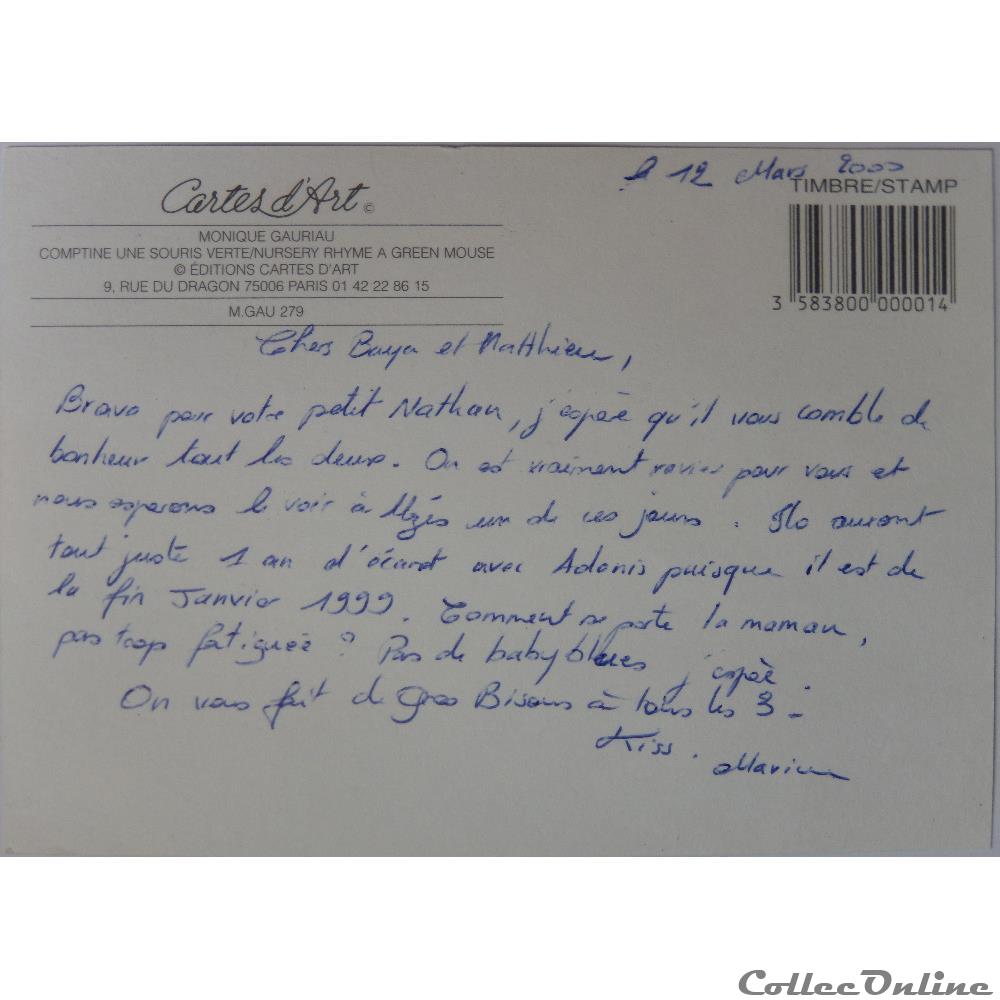 le 12 Mars 2000
Cartes d'Art ©
TIMBRE/STAMP
MONIQUE GAURIAU
COMPTINE UNE SOURIS VERTE/NURSERY RHYME A GREEN MOUSE
© ÉDITIONS CARTES D'ART
9, RUE DU DRAGON 75006 PARIS 01 42 22 86 15
M.GAU 279
3 583800 000014
Chers Baya et Matthieu,
Bravo pour votre petit Nathan, j'espère qu'il vous comble de
bonheur tout les deux. On est vraiment ravies pour vous et
nous esperons le voir à Uzés un de ces jours. Ils auront
tout juste 1 an d'écart avec Adonis puisque il est de
la fin Janvier 1999. Comment se porte la maman,
pas trop fatiguée ? Pas de baby blues j'espère.
On vous fait de Gros Bisous à tous les 3 -
Kiss.
CollecOnline